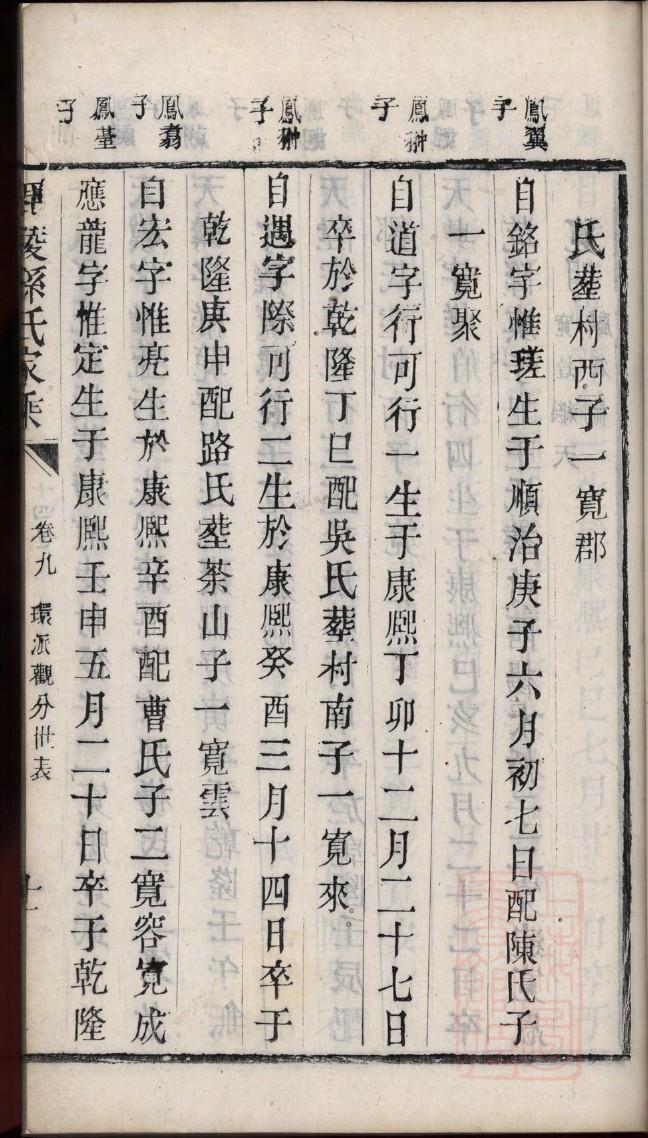 氏塟村西子一寬郡
鳳翼子
自銘字惟瑳生于順治庚子六月初七日配陳氏子
一寬聚
鳳翀子
自道字行可行一生于康熙丁卯十二月二十七日
卒於乾隆丁巳配吳氏塟村南子一寬來
鳳翀子
自遇字際可行二生於康熙癸酉三月十四日卒于
乾隆庚申配路氏塟茶山子一寬雲
鳳翥子
自宏字惟亮生於康熙辛酉配曹氏子二寬容寬成
鳳薹子
應龍字惟定生于康熙壬申五月二十日卒于乾隆
陵孫氏家乘
卷九 環派觀分世表
十一